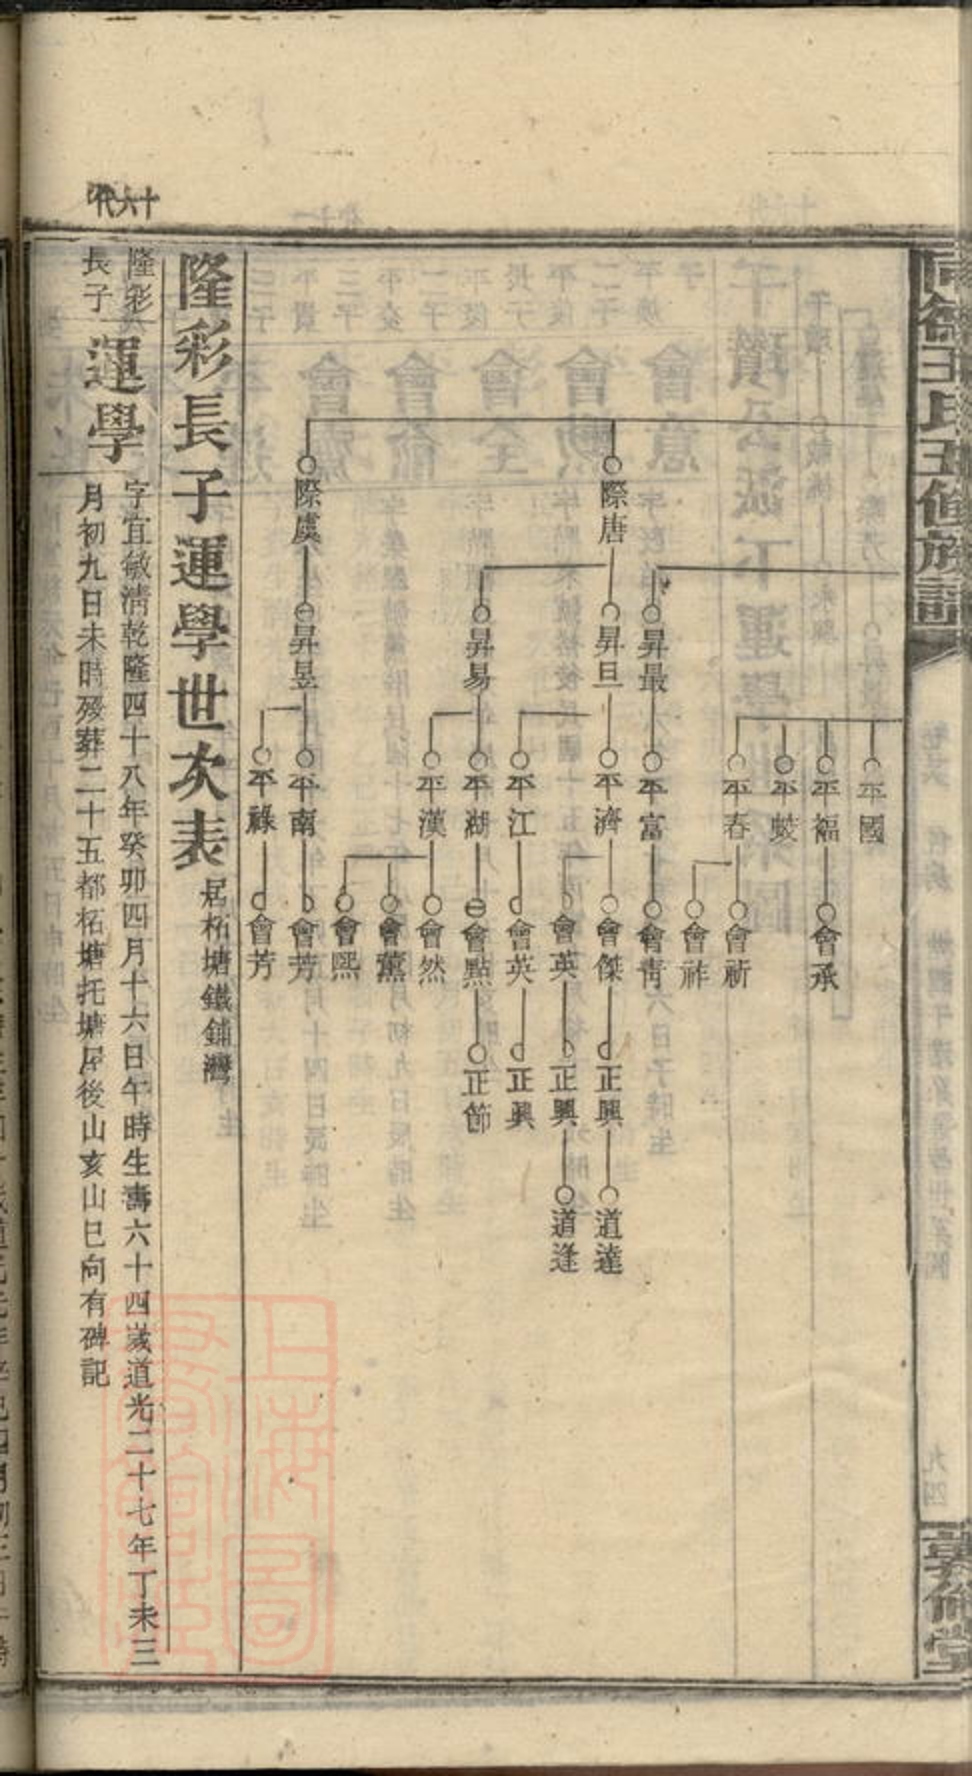 五修族譜
敦倫堂
平國
平福
會承
平蛟
平春
會祈
會祚
昇最
平富
會青
際唐
昇旦
平濟
會傑
正興
道達
會英
正興
道逢
平江
會英
正興
昇易
平湖
會點
正節
平漢
會然
會薰
會熙
際虞
昇昱
平南
會芳
平祿
會芳
隆彩長子運學世次表
居柘塘鐵鋪灣
十六代
隆彩
長子
運學
字宜敏清乾隆四十八年癸卯四月十六日午時生壽六十四歲道光二十七年丁未三
月初九日未時歿葬二十五都柘塘托塘屋後山亥山巳向有碑記
上海圖書館藏